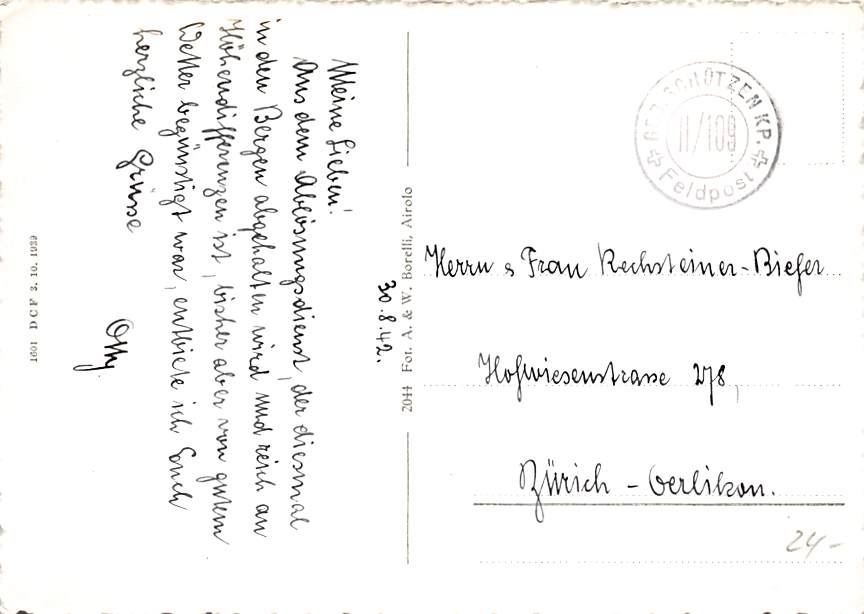 30.8.42.
Meine Lieben!
Aus dem Ablösungsdienst, der diesmal
in den Bergen abgehalten wird und reich an
Höhendifferenzen ist, bisher aber von gutem
Wetter begünstigt war, entbiete ich Euch
herzliche Grüsse
1601 DCF 2. 10. 1939
2044 Fot. A. & W. Borelli, Airolo
GEB. SCHÜTZEN KP.
II/109
Feldpost
Herrn & Frau Rechsteiner-Biefer
Hofwiesenstrasse 278,
Zürich - Oerlikon.
24-